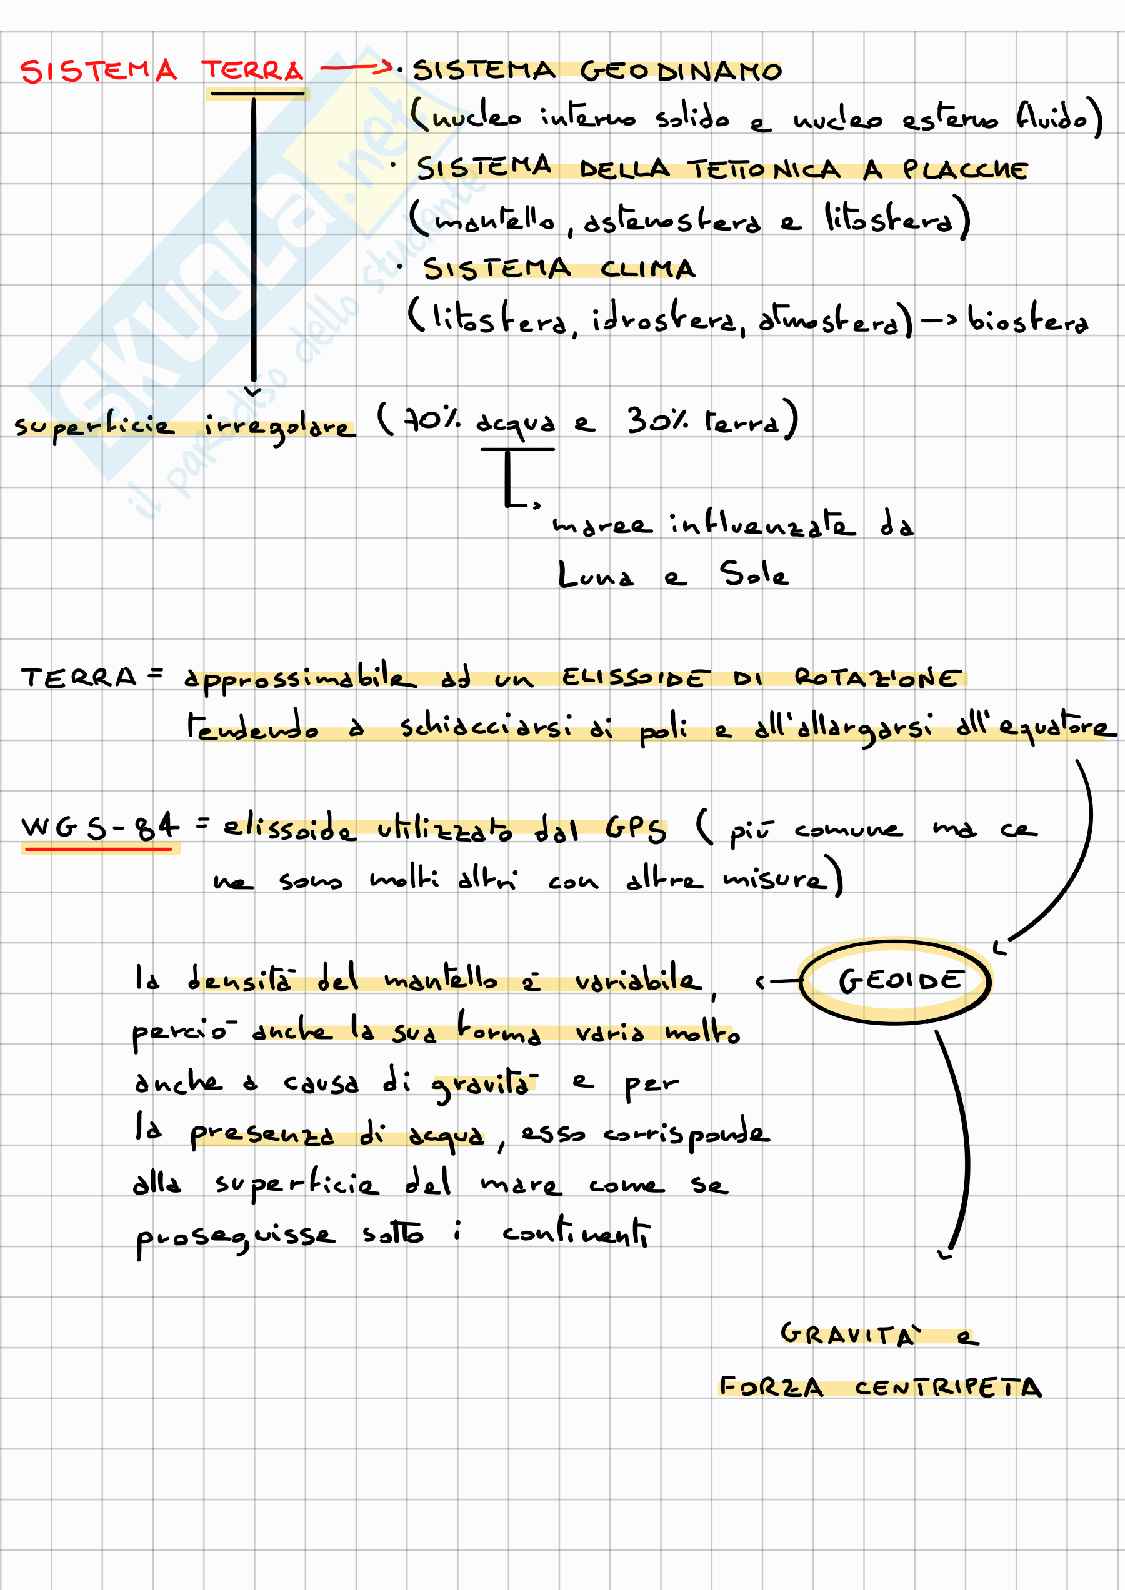 SISTEMA TERRA → · SISTEMA GEODINAMO
(nucleo interno solido e nucleo esterno fluido)
· SISTEMA DELLA TETTONICA A PLACCHE
(mantello, astenosfera e litosfera)
· SISTEMA CLIMA
(litosfera, idrosfera, atmosfera) → biosfera
superficie irregolare (70% acqua e 30% terra)
maree influenzate da
Luna e Sole
TERRA = approssimabile ad un ELISSOIDE DI ROTAZIONE
tendendo a schiacciarsi ai poli e all'allargarsi all'equatore
WGS-84 = elissoide utilizzato dal GPS (più comune ma ce
ne sono molti altri con altre misure)
GEOIDE
la densità del mantello è variabile,
perciò anche la sua forma varia molto
anche a causa di gravità e per
la presenza di acqua, esso corrisponde
alla superficie del mare come se
proseguisse sotto i continenti
GRAVITÀ e
FORZA CENTRIPETA
SKUOLA.net
il paradiso dello studente